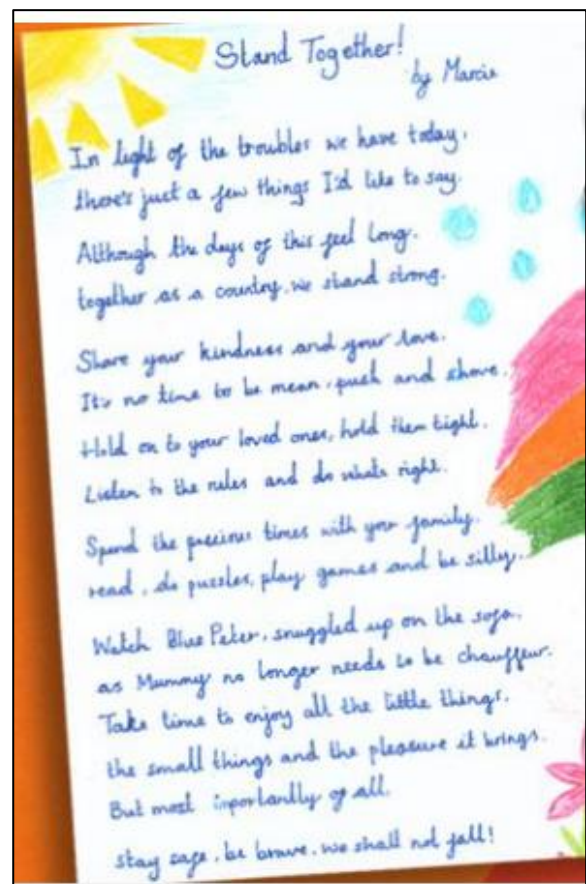 Stand Together!
by Marcia
In light of the troubles we have today,
there's just a few things I'd like to say.
Although the days of this feel long,
together as a country, we stand strong.
Share your kindness and your love.
It's no time to be mean, push and shove.
Hold on to your loved ones, hold them tight.
Listen to the rules and do whats right.
Spend the precious times with your family.
read, do puzzles, play games and be silly.
Watch Blue Peter, snuggled up on the sofa,
as Mummy no longer needs to be chauffeur.
Take time to enjoy all the little things,
the small things and the pleasure it brings.
But most inportantly of all,
stay safe, be brave, we shall not fall!